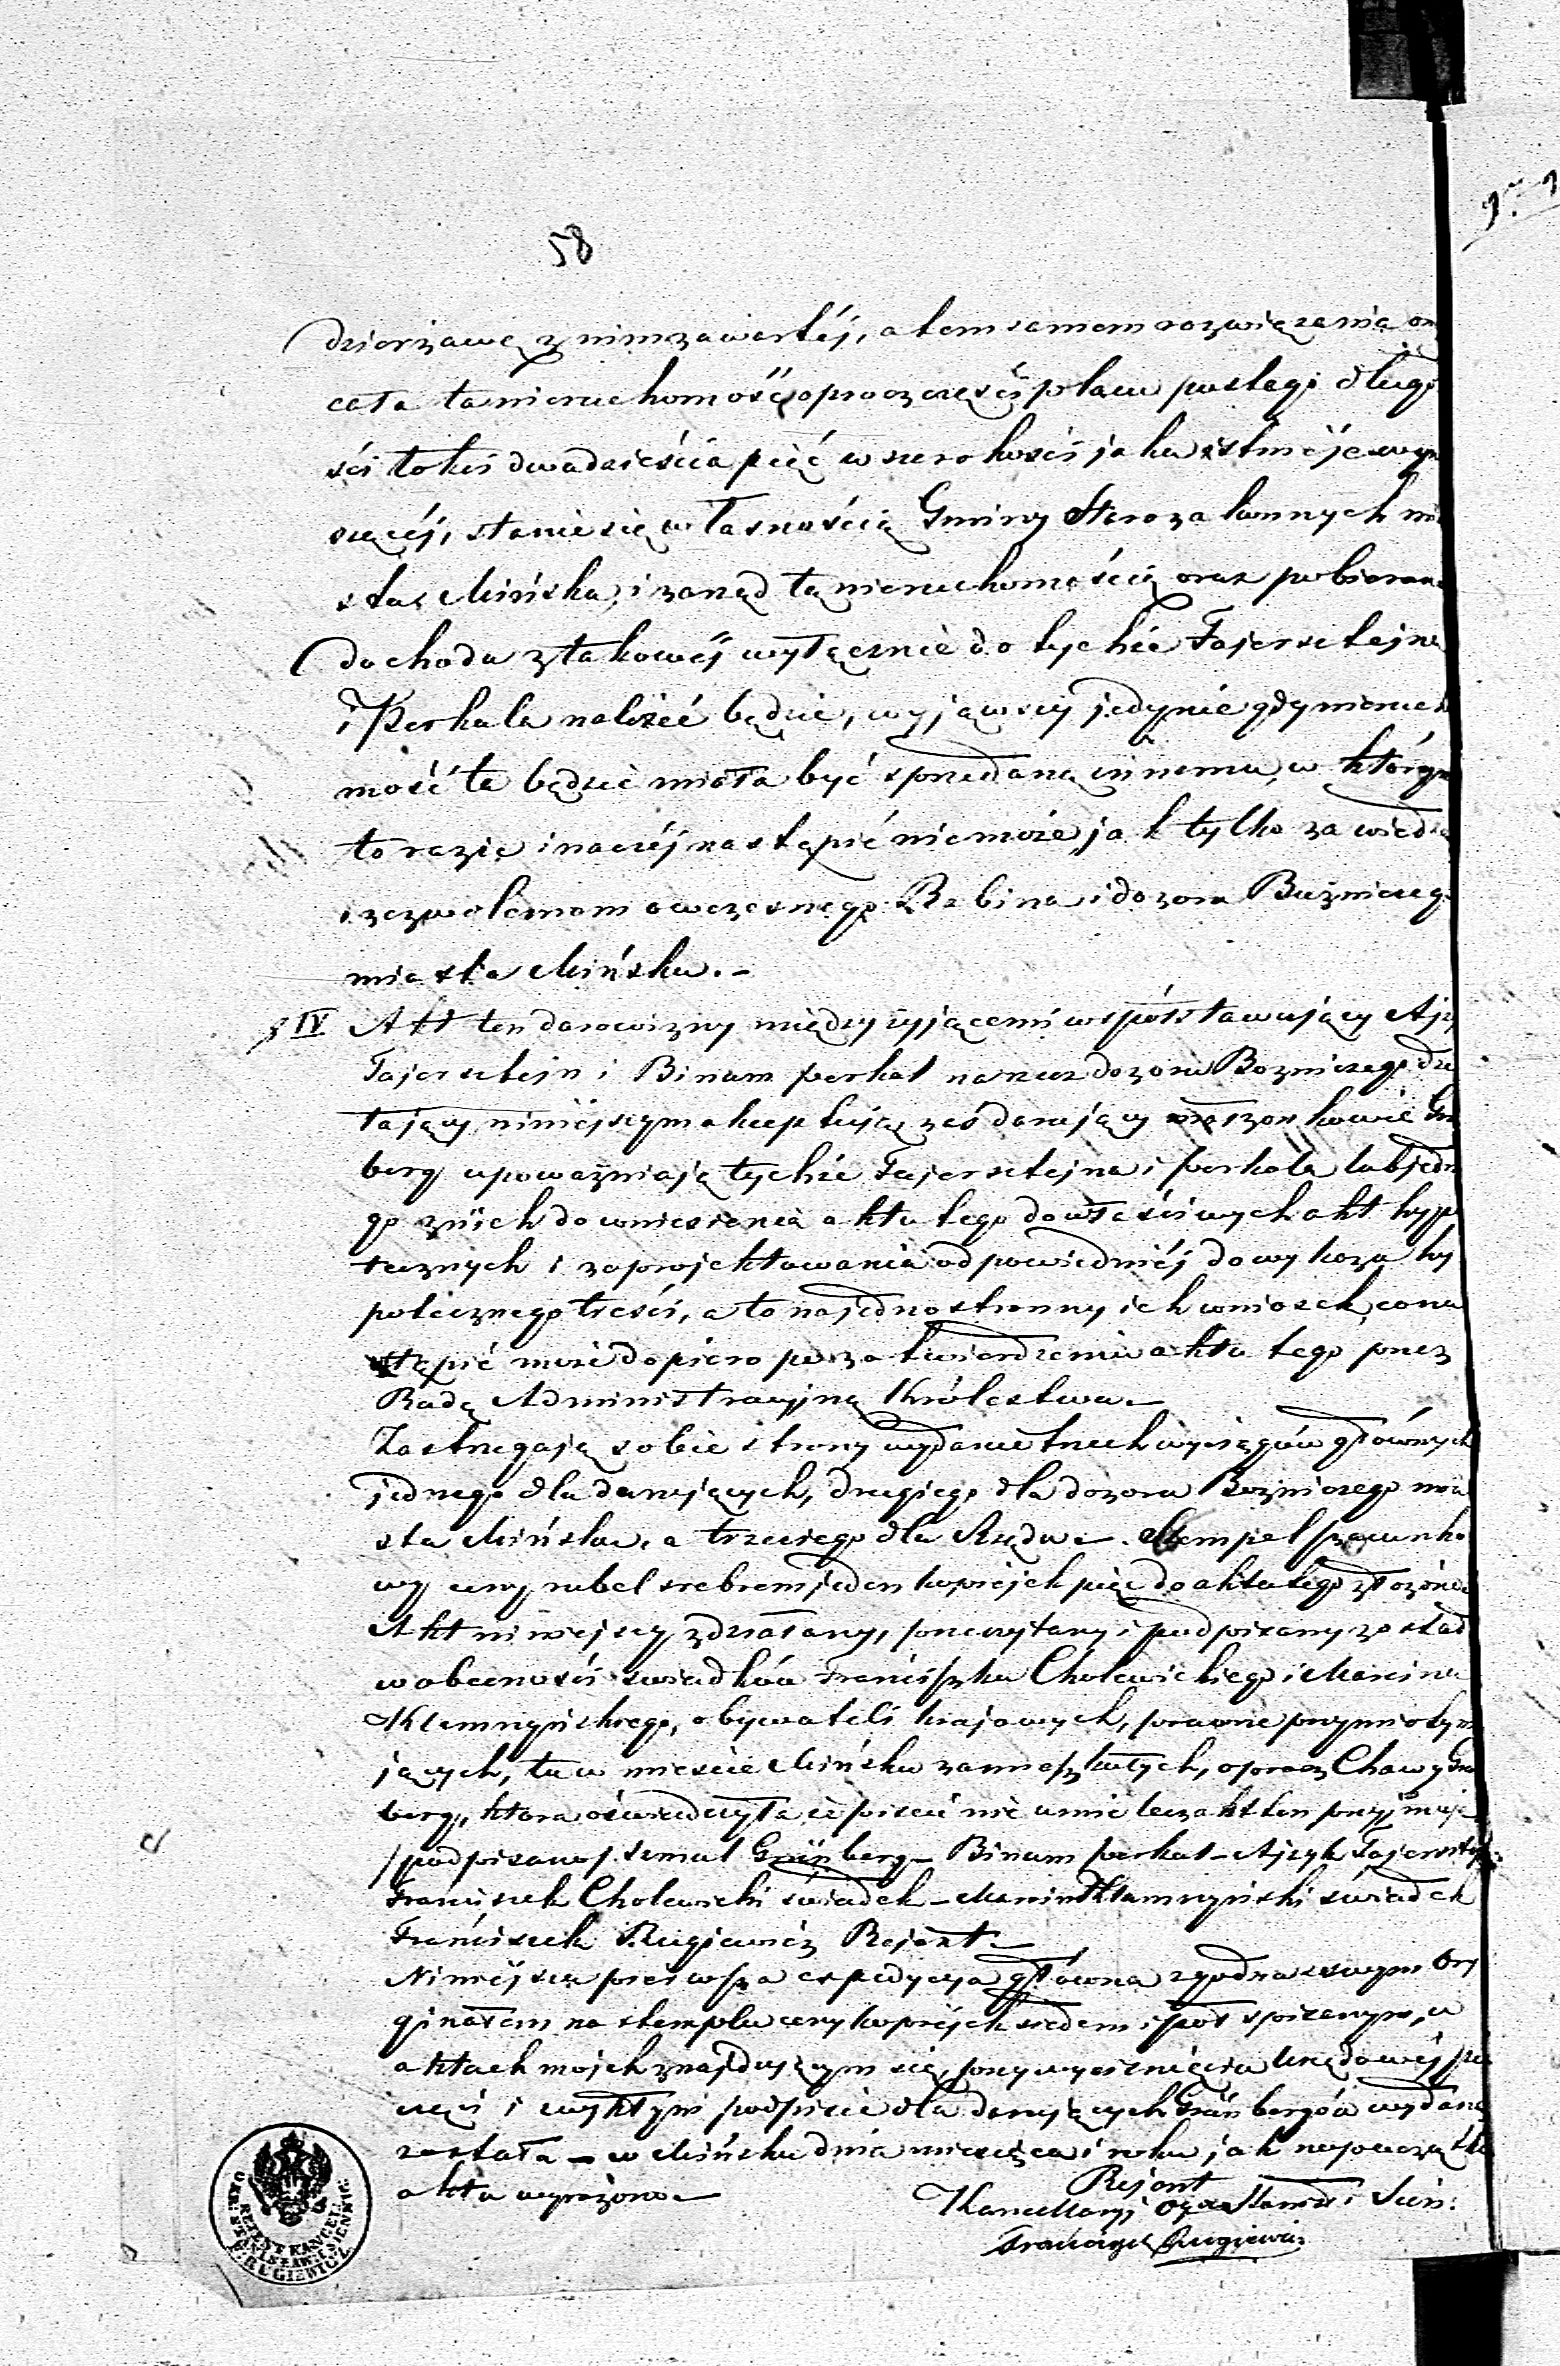 58
dzierżawę z nim zawartéj, a tem samem rozwiązania on
cała ta nieruchomość oprocz części placu pustego długo
ści łokci dwadzieścia pięć w szerokości jaka istnieje wyno
szącéj, stanie się własnością Gminy Starozakonnych mia
sta Mińska, i zarząd tą nieruchomością oraz pobieranie
dochodu z takowéj wyłącznie do tychże Fajersztejna
i Perkala należeć będzie, wyjąwszy jedynie gdy nierucho
mość ta będzie miała być sprzedaną innemu, w którym
to razie inaczéj nastąpić nie może, jak tylko za wiedzą
i zezwoleniem owczesnego Rabina i dozoru Bużniczego
miasta Mińska.-
§ IV Akt ten darowizny między żyjącemi współstawający Ajzyk
Fajersztejn i Binam Perkal na rzecz dozoru Bożniczego dzia
łający niniejszym akceptują, zaś darujący małżonkowie Grün
berg upoważniają tychże Fajersztejna i Perkala lub jedne
go z nich do wniesienia aktu tego do właściwych akt hypo
tecznych i zaprojektowania odpowiedniéj do wykazu hy
potecznego treści, a to na jednostronny ich wniosek, co na
stąpić może dopiero po zatwierdzeniu aktu tego przez
Radę Administracyjną Królestwa.-
Zastrzegają sobie strony wydanie trzech wyciągów głównych
jednego dla darujących, drugiego dla dozoru Bożniczego mia
sta Mińska, a trzeciego dla Rządu.- Stempel szacunko
wy ceny rubel srebrem jeden kopiejek pięć do aktu tego złożono
Akt niniejszy zdziałany, przeczytany i podpisany został
w obecności świadków Franciszka Cholewickiego i Marcina
Klemrzyńskiego, obywateli krajowych, prawne przymioty ma
jących, tu w mieście Mińsku zamieszkałych, oprocz Chawy Grün
berg, która oświadczyła że pisać nie umie lecz akt ten przyjmuje
/podpisano/ Szmul Grünberg - Binam Perkal - Ajzyk Fajersztejn
Franciszek Cholewicki świadek - Marcin Klamrzyński świadek
Franciszek Rugiewicz Rejent.-
Niniejsza pierwsza expedycya główna zgodna z swym Ory
ginałem na stemplu ceny kopiejek siedem i pół spisanym, w
aktach moich znajdującym się, przy wyciśnięciu urzędowéj pie
częci i zwykłym podpisie dla darujących Grünbergów wydaną
została - w Mińsku dnia miesiąca i roku jak na początku
aktu wyrażono.-
Rejent
Kancellaryi Okr. Stanisł. i Sien:
Franciszek Rugiewicz
REJENT KANCELL.
OKRĘGU STANISŁAW: SIENNICK:
F. RUGIEWICZ